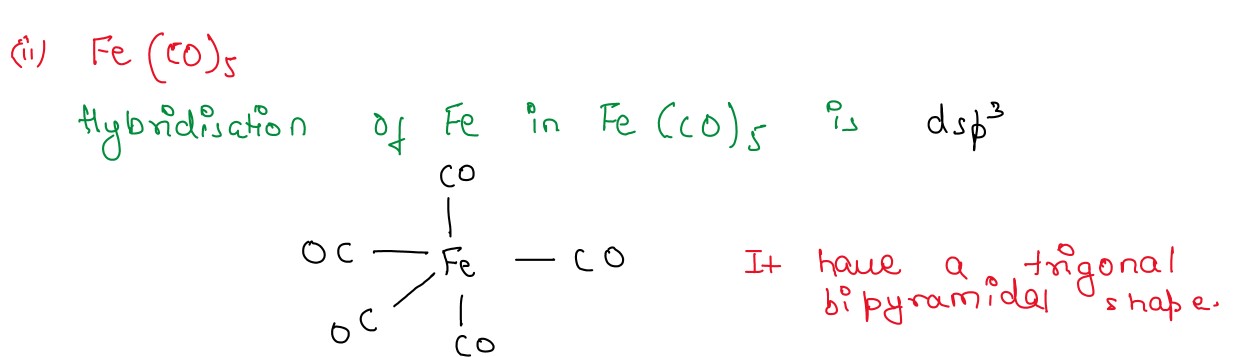 (ii) Fe (CO)₅
Hybridisation of Fe in Fe (CO)₅ is dsp³
CO
OC — Fe — CO
OC
CO
It have a trigonal
bipyramidal shape.